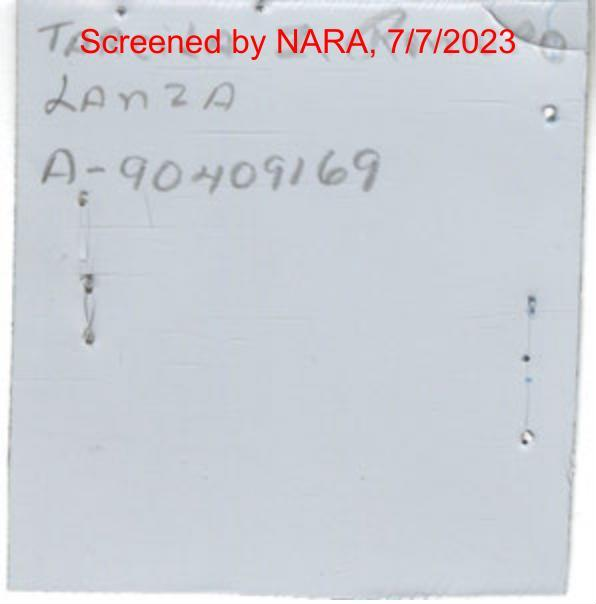 Screened by NARA, 7/7/2023
LANZA
A-90409169